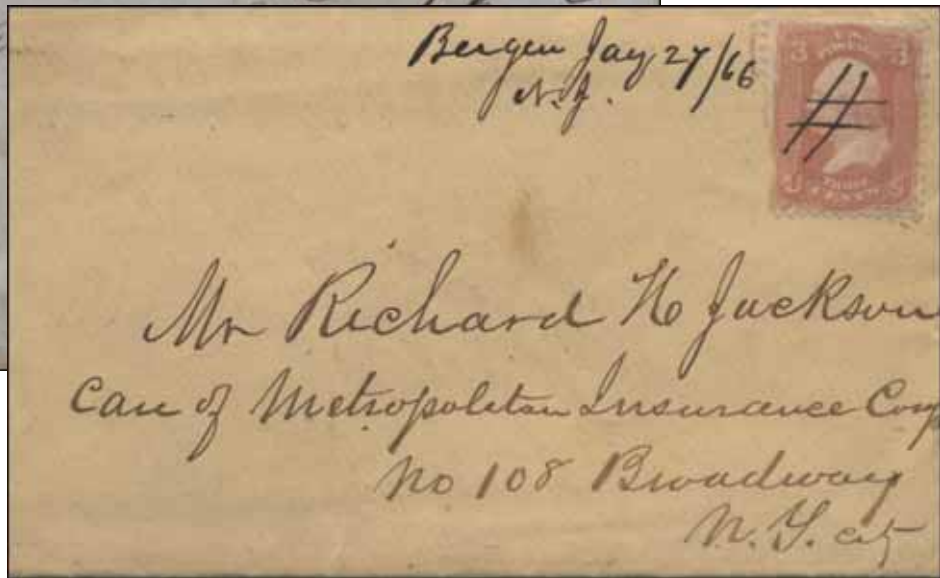 Bergen Jay 27/66
N.J.
3 3
Mr Richard H Jackson
Care of Metropolitan Insurance Comp
No 108 Broadway
N. Y. city